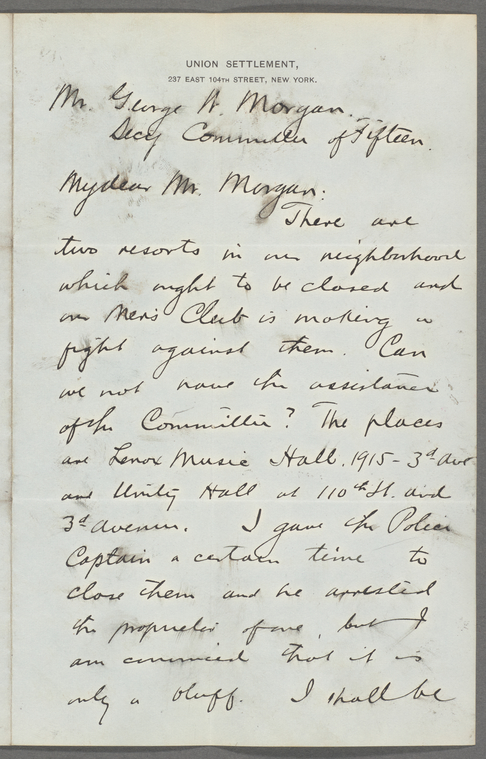 UNION SETTLEMENT,
237 EAST 104TH STREET, NEW YORK.
Mr. George W. Morgan.
Secy Committee of Fifteen.
My dear Mr. Morgan:
There are
two resorts in our neighborhood
which ought to be closed and
our Men's Club is making a
fight against them. Can
we not have the assistance
of the Committee? The places
are Lenox Music Hall, 1915 - 3d Ave
and Unity Hall at 110th St. and
3d Avenue. I gave the Police
Captain a certain time to
close them and he arrested
the proprietor of one, but I
am convinced that it is
only a bluff. I shall be